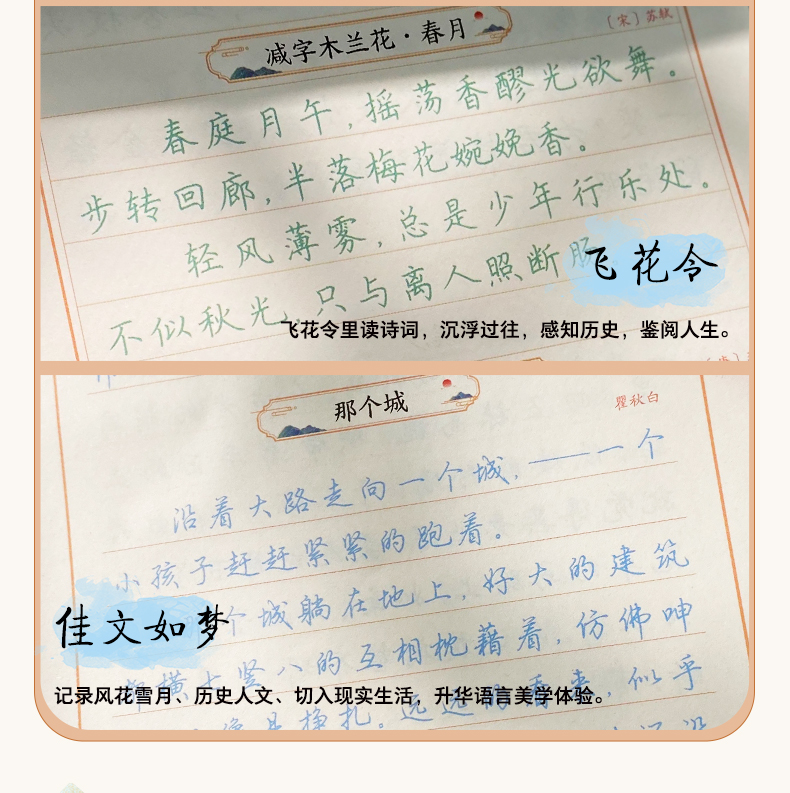 减字木兰花·春月
〔宋〕苏轼
春庭月午,摇荡香醪光欲舞。
步转回廊,半落梅花婉娩香。
轻风薄雾,总是少年行乐处。
不似秋光,只与离人照断肠
飞花令
飞花令里读诗词，沉浮过往，感知历史，鉴阅人生。
那个城
瞿秋白
沿着大路走向一个城,——一个
小孩子赶赶紧紧的跑着。
个城躺在地上,好大的建筑
横大竖八的互相枕藉着,仿佛呻
佳文如梦
像是挣扎。远远的看来,似乎
记录风花雪月、历史人文、切入现实生活，升华语言美学体验。